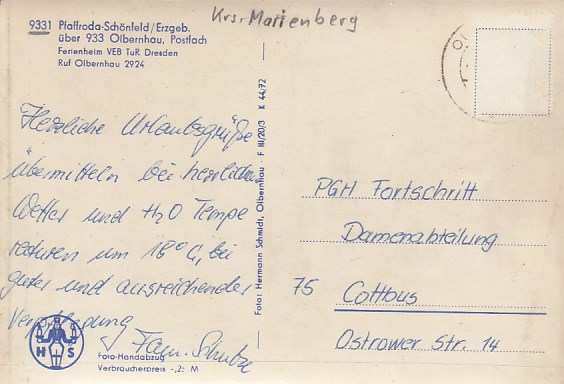 Krs. Marienberg
9331 Pfaffroda-Schönfeld/Erzgeb.
über 933 Olbernhau, Postfach
Ferienheim VEB TuR Dresden
Ruf Olbernhau 2924
Herzliche Urlaubsgrüße
übermitteln bei herrlichem
Wetter und H2O Tempe
raturen um 18° C, bei
guter und ausreichender
Verpflegung
Fam. Schulze
Foto: Hermann Schmidt, Olbernhau · F III/20/3 K 44/72
H S
Foto-Handabzug
Verbraucherpreis -,25 M
PGH Fortschritt
Damenabteilung
75 Cottbus
Ostrower Str. 14